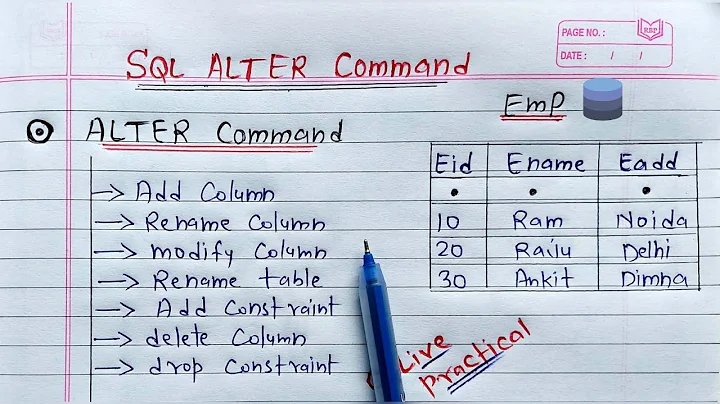 PAGE NO. :
DATE : / /
SQL ALTER Command
ALTER Command
→ Add Column
→ Rename Column
→ modify Column
→ Rename table
→ Add Constraint
→ delete Column
→ drop Constraint
Emp
Eid Ename Eadd
• • •
10 Ram Noida
20 Raju Delhi
30 Ankit Dimna
Live
Practical